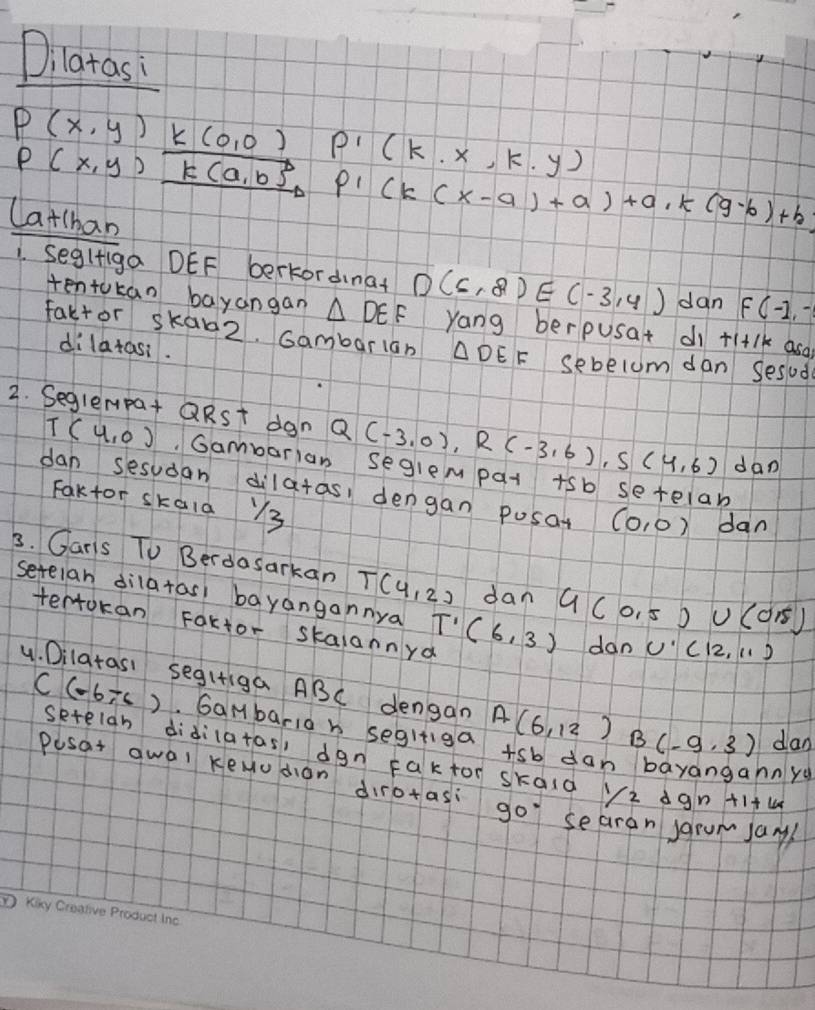 Dilatasi
P (x, y) K (0,0) P' (K . x, K. y)
P (x, y) K (a, b) P' (K (x-a) + a) + a, K (y-b) + b)
Latihan
1. Segitiga DEF berkordinat D (5, 8) E (-3, 4) dan F(-2, -
tentukan bayangan Δ DEF yang berpusat di titik asa
faktor skala 2. Gambarlah Δ DEF sebelum dan sesud
dilatasi.
2. Segiempat QRST dgn Q (-3,0), R (-3,6), S (4,6) dan
T (4,0). Gambarlah segiempat tsb setelah
dan sesudah dilatasi dengan pusat (0,0) dan
Faktor skala 1/3
3. Garis TU Berdasarkan T(4,2) dan U (0,5) U (0,5)
Setelah dilatasi bayangannya T' (6,3) dan U' (12,11)
tentukan Faktor skalannya
4. Dilatasi segitiga ABC dengan A (6,12) B (-9,3) dan
C (-6,-6). Gambarlah segitiga tsb dan bayangannya
setelah didilatasi dgn faktor skala 1/2 dgn titik
pusat awal kemudian dirotasi 90° searah jarum jam!
Kiky Creative Product Inc